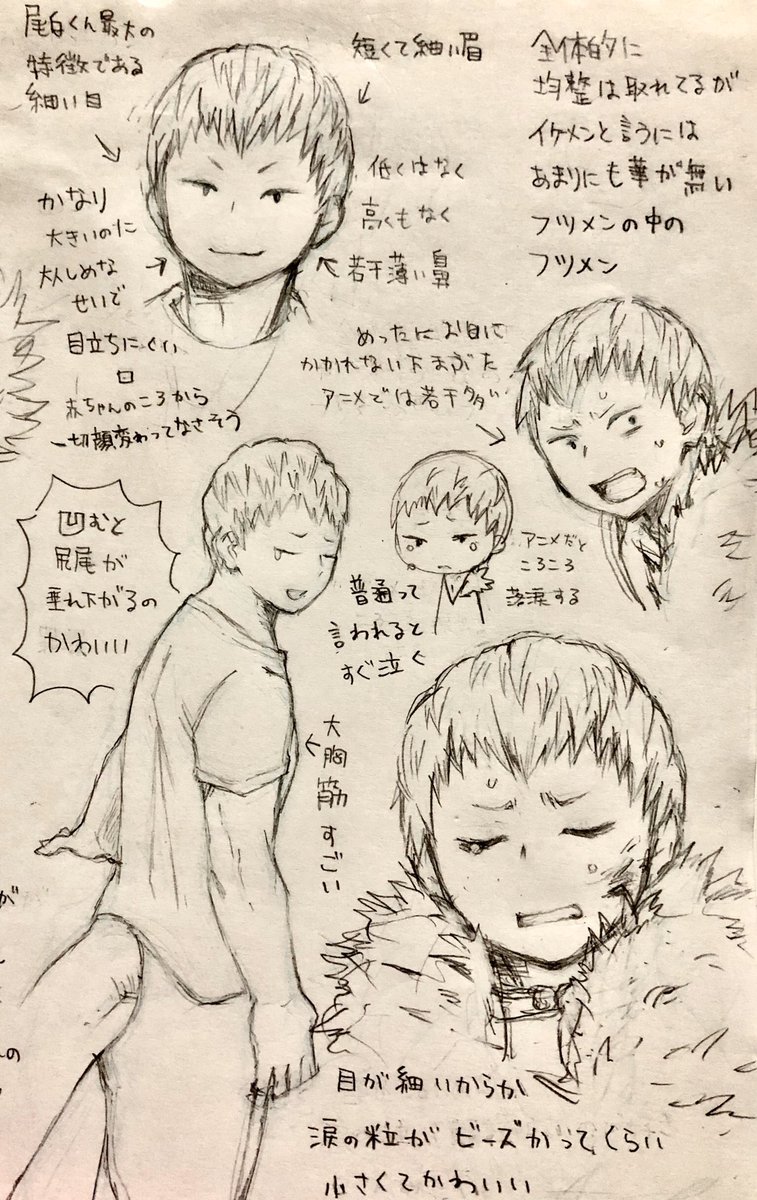 尾白くん最大の
特徴である
細い目
短くて細い眉
全体的に
均整は取れてるが
イケメンと言うには
あまりにも華が無い
フツメンの中の
フツメン
低くはなく
高くもなく
若干薄い鼻
かなり
大きいのに
大人しめな
せいで
目立ちにくい
口
赤ちゃんのころから
一切顔変わってなさそう
めったにお目に
かかれない下まぶた
アニメでは若干多め
凹むと
尻尾が
垂れ下がるの
かわいい
普通って
言われると
すぐ泣く
アニメだと
ころころ
落涙する
大胸筋すごい
が
の
目が細いからか
涙の粒がビーズかってくらい
小さくてかわいい